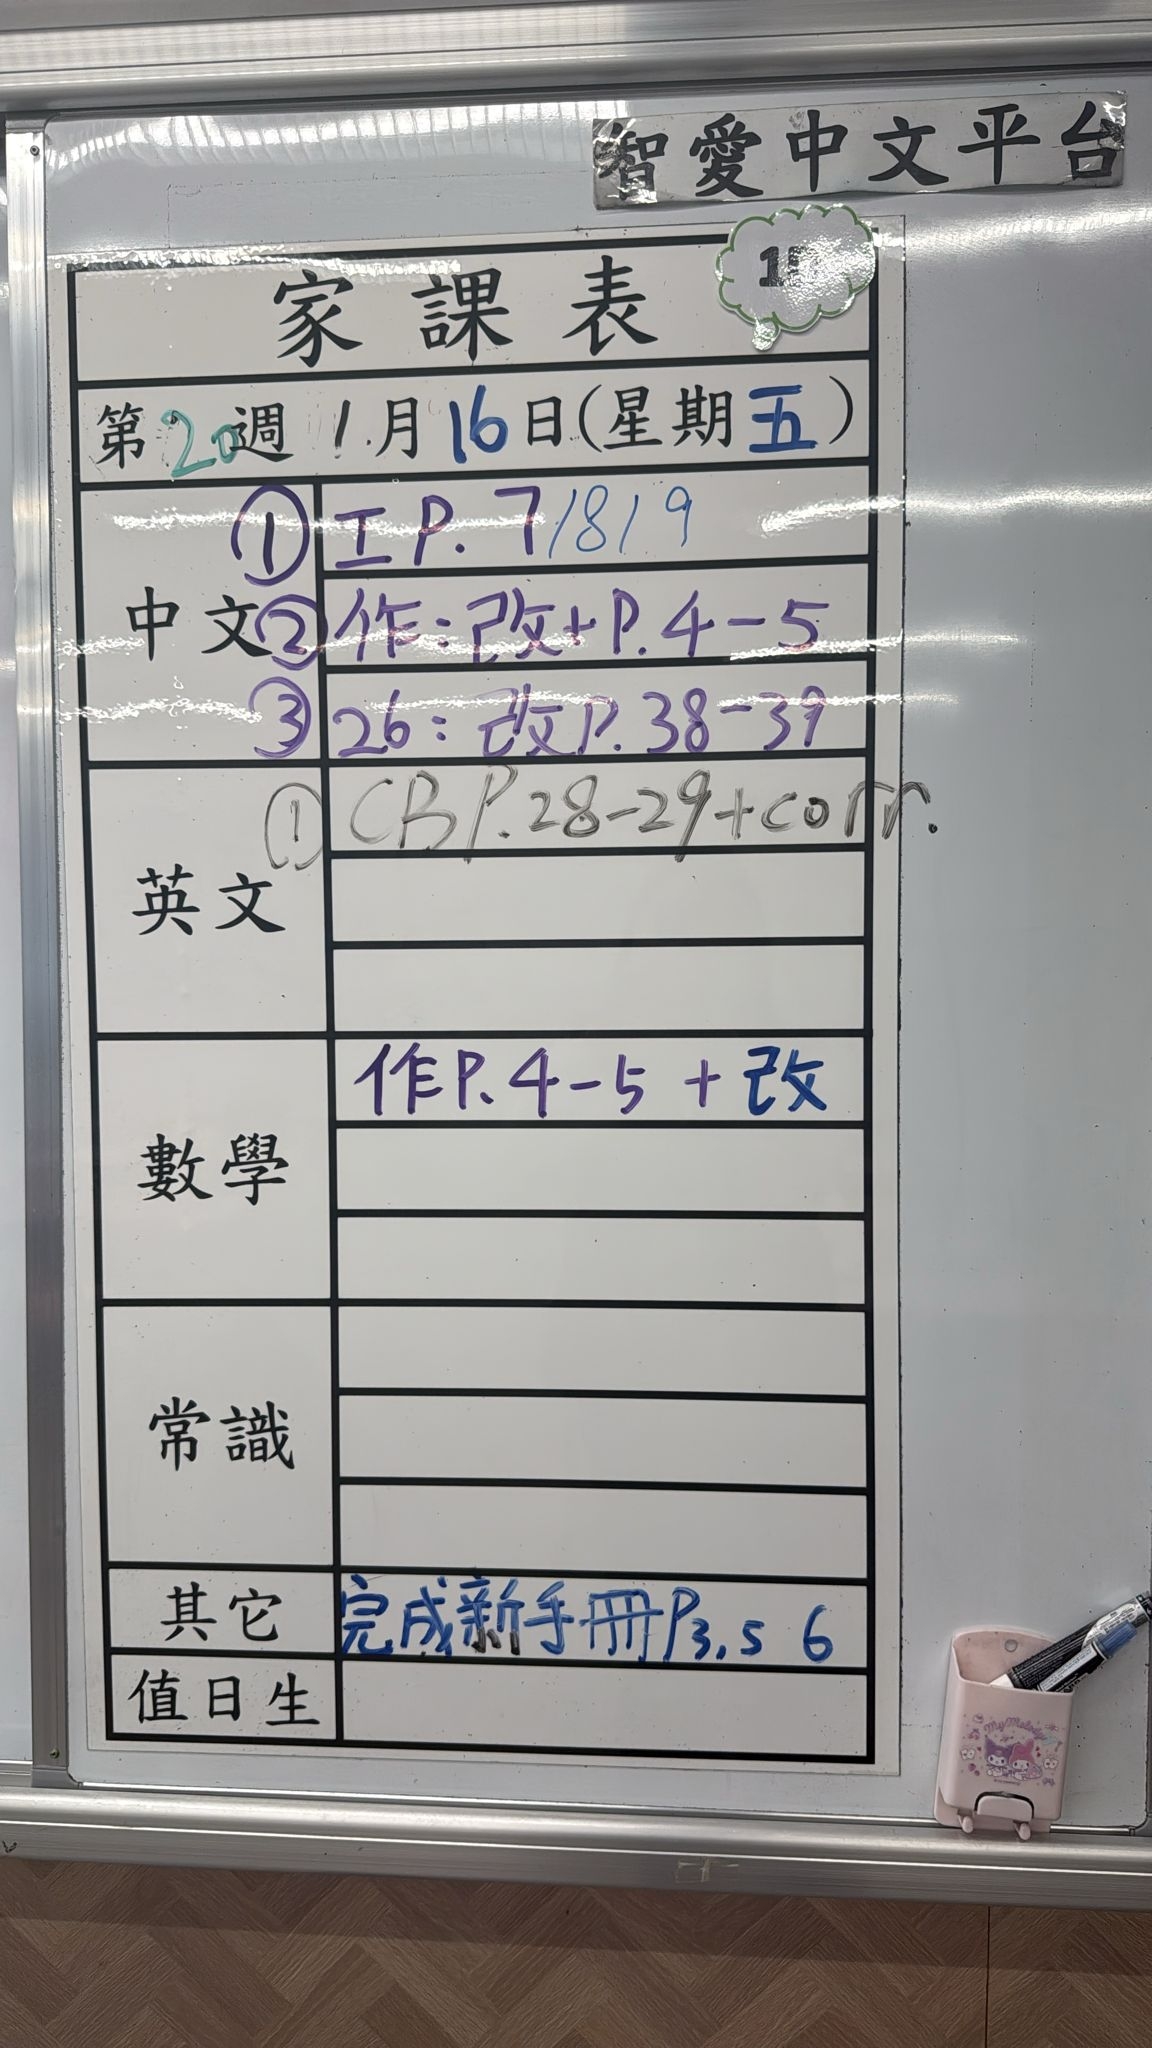 智愛中文平台
家課表
第20週 1月16日(星期五)
中文
① 工 P. 7/8/9
② 作:改+P.4-5
③ 26:改P.38-39
英文
① CB P.28-29+corr.
數學
作P.4-5 + 改
常識
其它
完成新手冊P3,5 6
值日生
My Melody